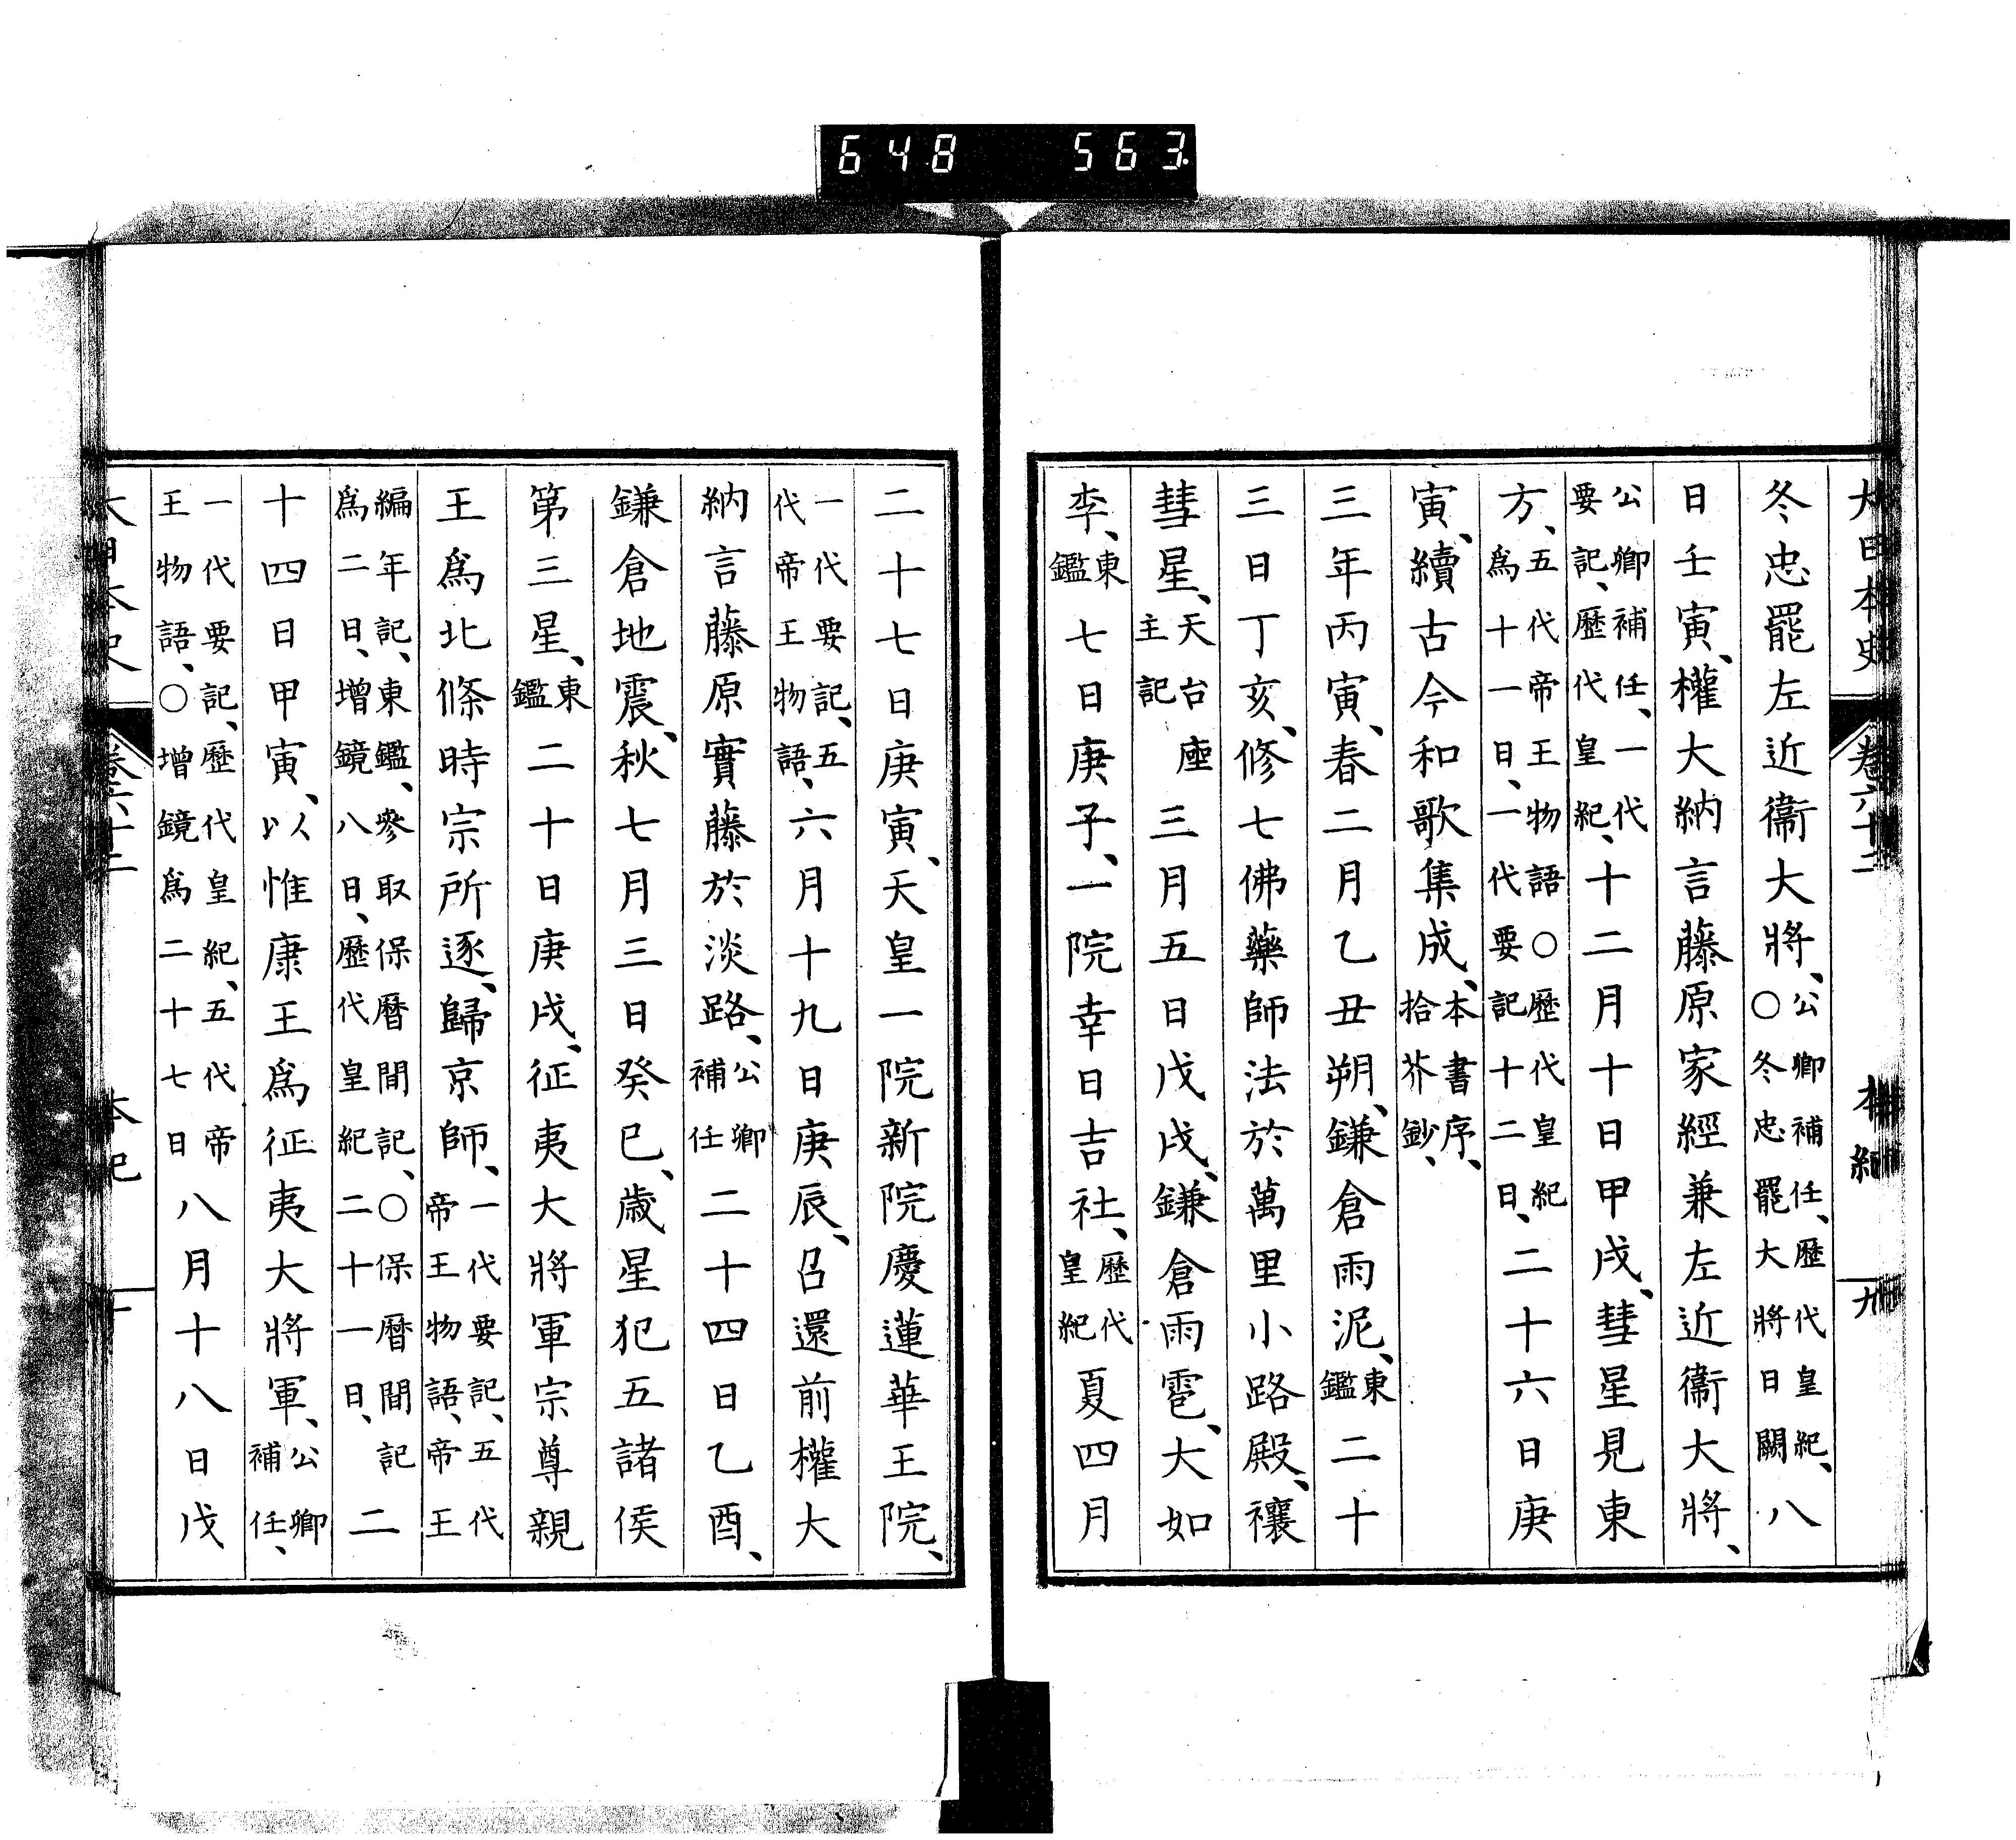 648 563
大日本史 卷六十二 本紀 九
冬忠罷左近衞大將、公卿補任、歷代皇紀、○冬忠罷大將日闕八
日壬寅、權大納言藤原家經兼左近衞大將、
公卿補任、一代要記、歷代皇紀、十二月十日甲戌、彗星見東
方、五代帝王物語○歷代皇紀爲十一日、一代要記十二日、二十六日庚
寅、續古今和歌集成、本書序、拾芥鈔、
三年丙寅、春二月乙丑朔、鎌倉雨泥、東鑑二十
三日丁亥、修七佛藥師法於萬里小路殿、禳
彗星、天台座主記三月五日戊戌、鎌倉雨雹、大如
李、東鑑七日庚子、一院幸日吉社、歷代皇紀夏四月
二十七日庚寅、天皇一院新院慶蓮華王院、
一代要記、五代帝王物語、六月十九日庚辰、召還前權大
納言藤原實藤於淡路、公卿補任二十四日乙酉、
鎌倉地震、秋七月三日癸巳、歲星犯五諸侯
第三星、東鑑二十日庚戌、征夷大將軍宗尊親
王爲北條時宗所逐、歸京師、一代要記、五代帝王物語、帝王
編年記、東鑑、參取保曆間記、○保曆間記爲二日、增鏡八日、歷代皇紀二十一日、二
十四日甲寅、以惟康王爲征夷大將軍、公卿補任、
一代要記、歷代皇紀、五代帝王物語、○增鏡爲二十七日八月十八日戊
大日本史 卷六十二 本紀